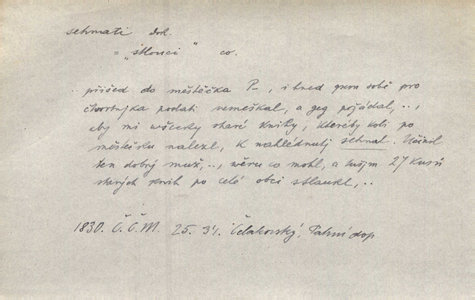 sehnati dok.
= „stlouci“ co.
přišed do městečka P–, ihned jsem sobě pro
čtvrtníka poslati nemeškal, a geg požádal, . . ,
aby mi wšecky staré knihy, kteréby koli po
městečku nalezl, k nahlédnutj sehnal. Učinil
ten dobrý muž, . . , něco mohl, a 27 kusů
starých knih po celé obci stlaukl, . .
1830. Č.Č.M. 25. 31. Čelakovský,